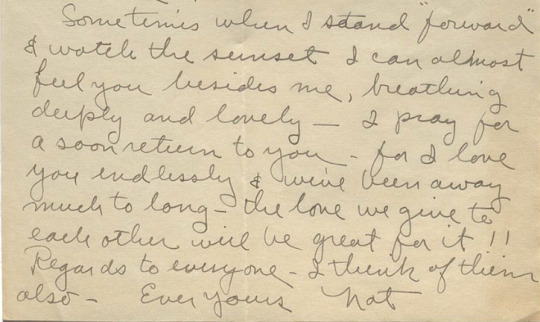 Sometimes when I stand "forward"
& watch the sunset I can almost
feel you besides me, breathing
deeply and lovely — I pray for
a soon return to you - for I love
you endlessly & we've been away
much to long - the love we give to
each other will be great for it !!
Regards to everyone - I think of them
also - Ever yours Nat